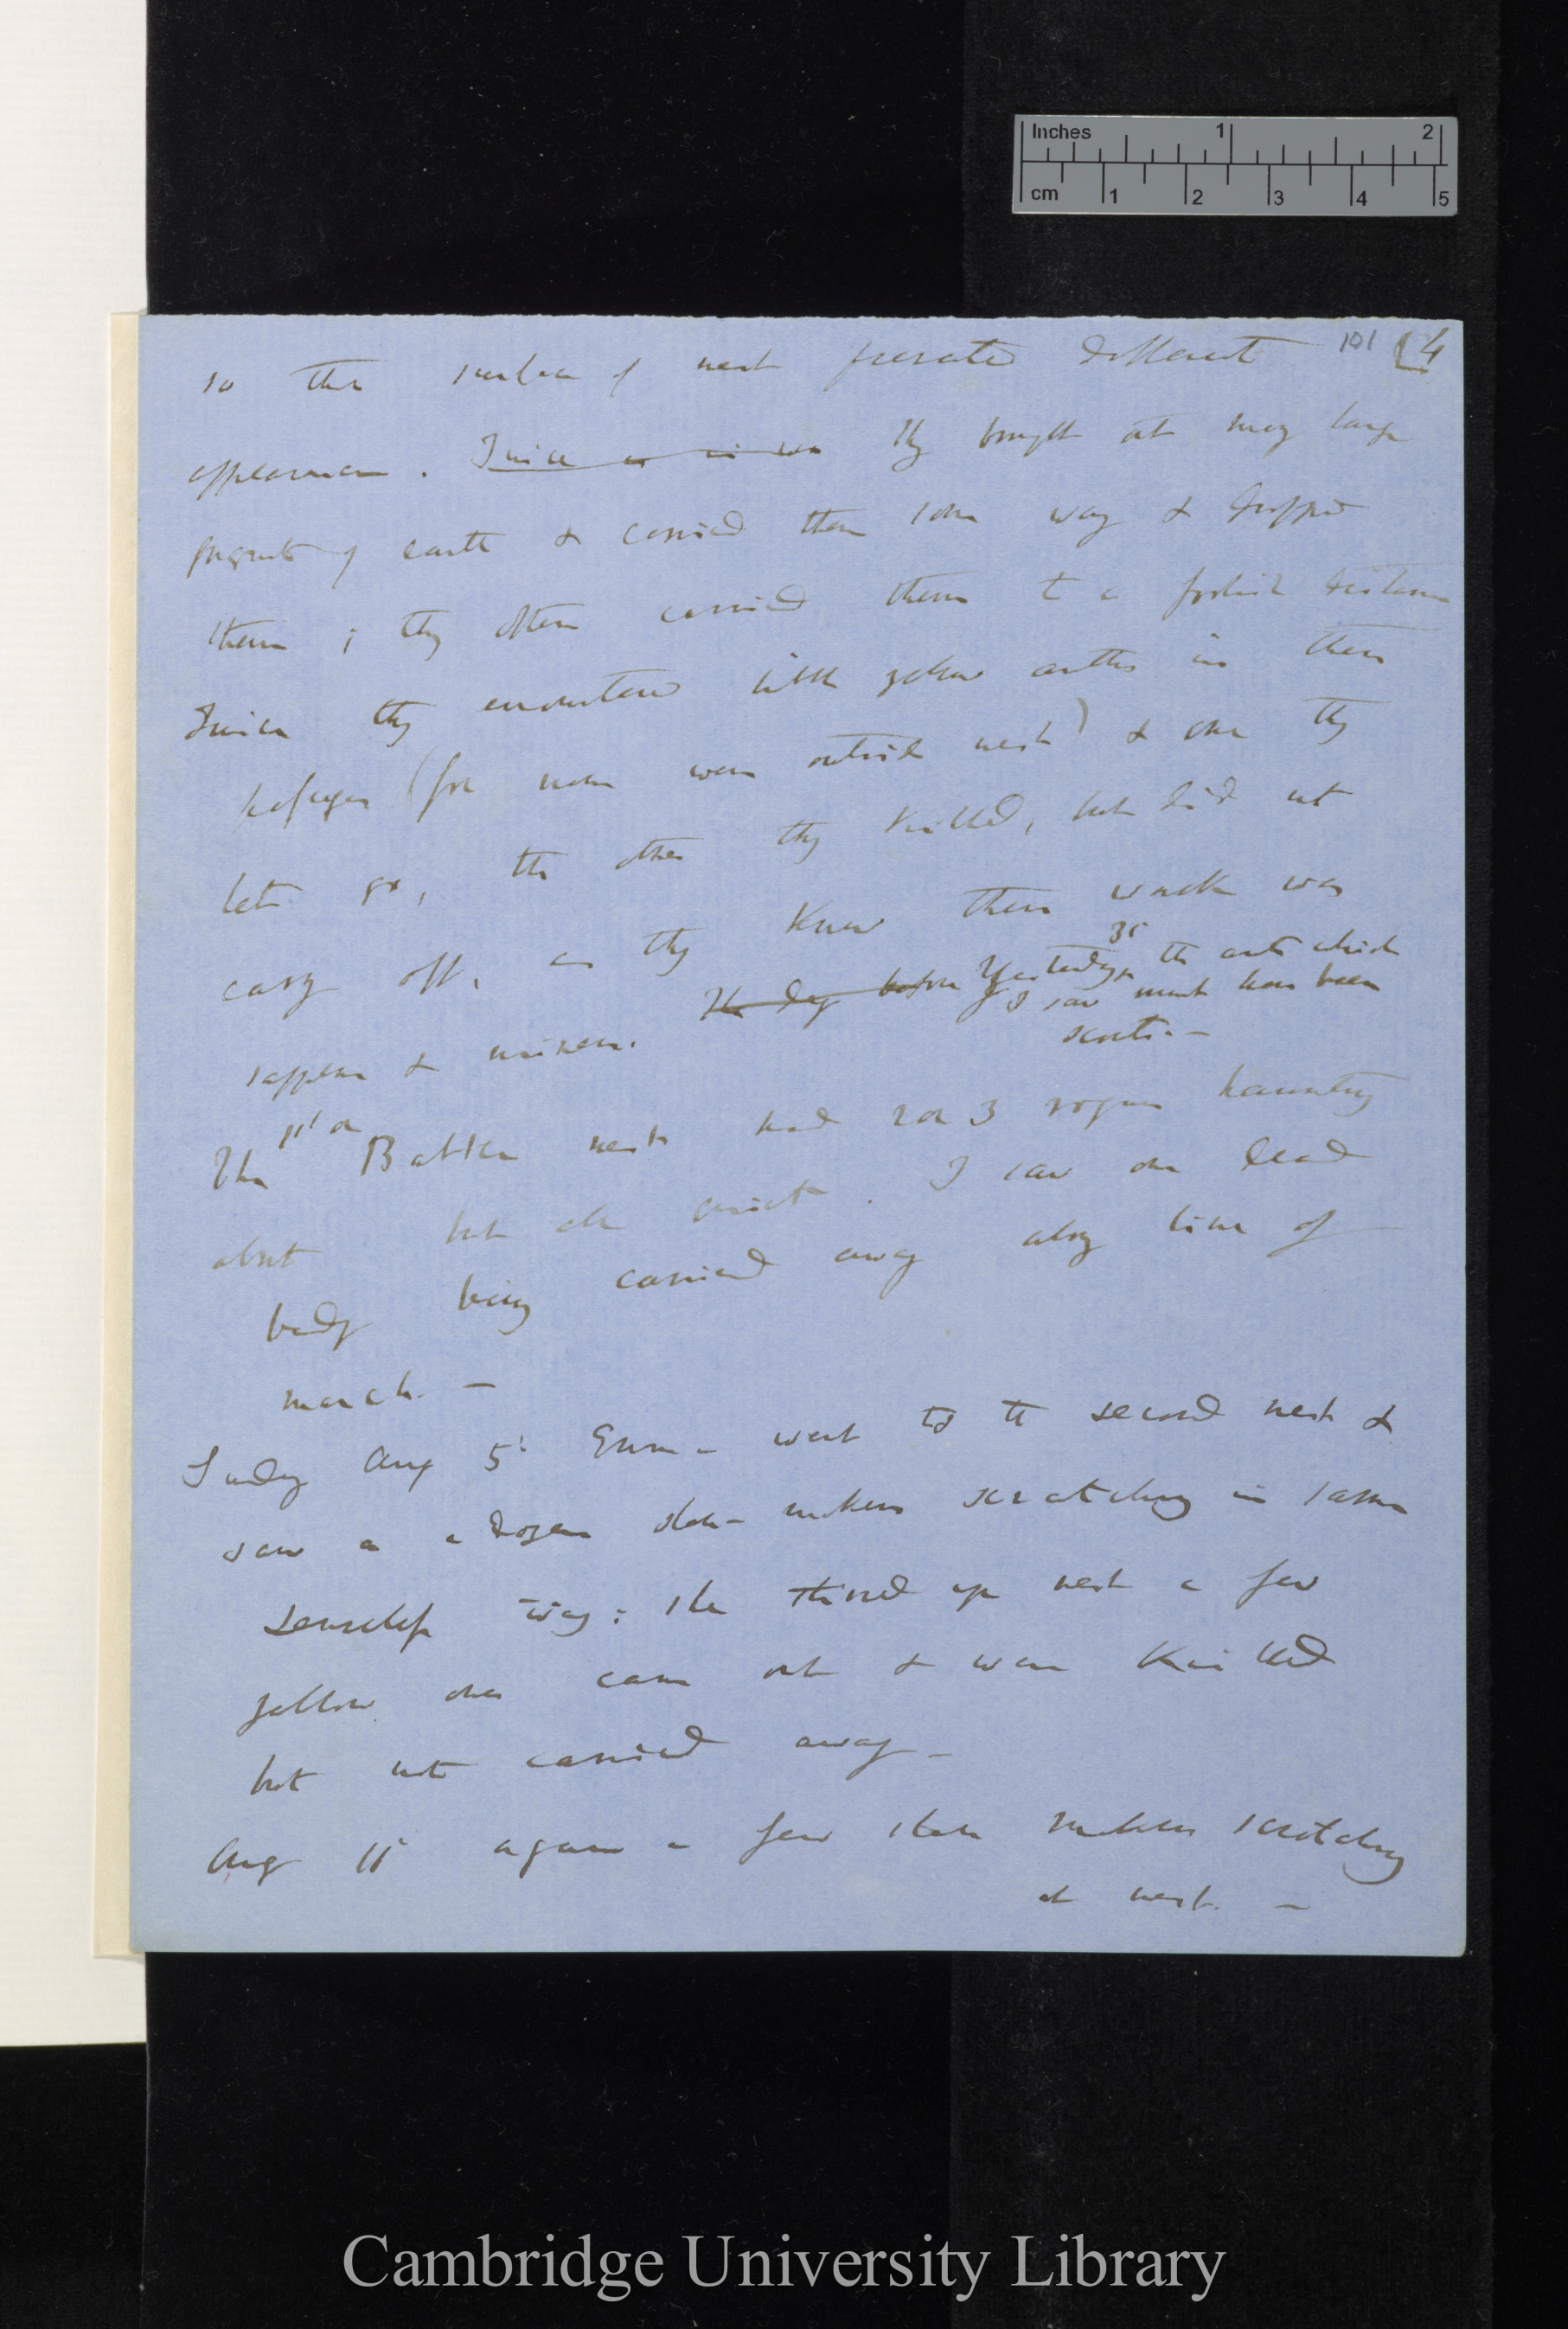 Inches 1 2
cm 1 2 3 4 5
101 [4
so that surface of nest presented different
appearance. Twice they brought out many large
fragments of earth & carried them some way & dropped
them; they often carried them to a foolish distance
Twice they encountered little yellow ants in their
passages (for none were outside nest) & one they
let go, the other they killed, but did not
carry off, as they knew their work was
sappers & miners. The day before Yesterday 3d the ants which
I saw must have been
scouts.—
The 1st or Battle nest had 2 or 3 rogues haunting
about but all quiet. I saw one dead
body being carried away along line of
march. —
Sunday Aug 5t Emma went to the second nest &
saw a dozen slave-makers scratching in same
senseless way: she stirred up nest a few
yellow ones came out & were killed
but not carried away —
Aug 11 again a few slave makers scratching
at nest. —
Cambridge University Library